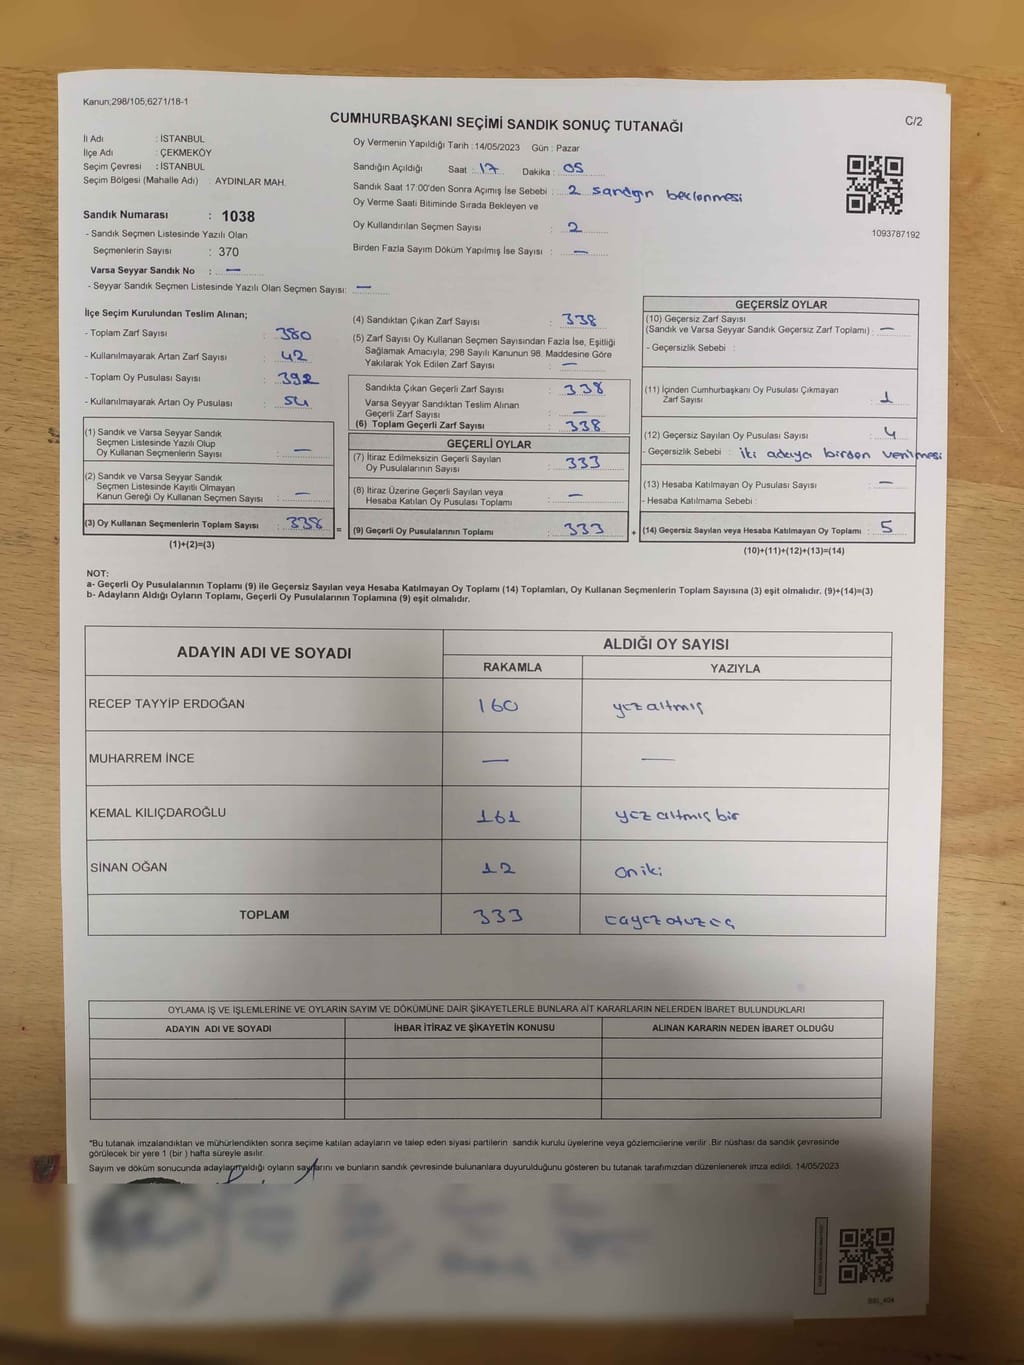 Kanun;298/105,6271/18-1
CUMHURBAŞKANI SEÇİMİ SANDIK SONUÇ TUTANAĞI
C/2
İl Adı : İSTANBUL
İlçe Adı : ÇEKMEKÖY
Seçim Çevresi : İSTANBUL
Seçim Bölgesi (Mahalle Adı) : AYDINLAR MAH.
Oy Vermenin Yapıldığı Tarih : 14/05/2023 Gün : Pazar
Sandığın Açıldığı Saat : 17 Dakika : 05
Sandık Saat 17:00'den Sonra Açımış İse Sebebi : 2 sandığın beklenmesi
Oy Verme Saati Bitiminde Sırada Bekleyen ve
Oy Kullandırılan Seçmen Sayısı : 2
Birden Fazla Sayım Döküm Yapılmış İse Sayısı : —
1093787192
Sandık Numarası : 1038
- Sandık Seçmen Listesinde Yazılı Olan
Seçmenlerin Sayısı : 370
Varsa Seyyar Sandık No : —
- Seyyar Sandık Seçmen Listesinde Yazılı Olan Seçmen Sayısı: —
İlçe Seçim Kurulundan Teslim Alınan;
- Toplam Zarf Sayısı : 380
- Kullanılmayarak Artan Zarf Sayısı : 42
- Toplam Oy Pusulası Sayısı : 392
- Kullanılmayarak Artan Oy Pusulası : 54
(1) Sandık ve Varsa Seyyar Sandık
Seçmen Listesinde Yazılı Olup
Oy Kullanan Seçmenlerin Sayısı : —
(2) Sandık ve Varsa Seyyar Sandık
Seçmen Listesinde Kayıtlı Olmayan
Kanun Gereği Oy Kullanan Seçmen Sayısı : —
(3) Oy Kullanan Seçmenlerin Toplam Sayısı : 338 =
(1)+(2)=(3)
(4) Sandıktan Çıkan Zarf Sayısı : 338
(5) Zarf Sayısı Oy Kullanan Seçmen Sayısından Fazla İse, Eşitliği
Sağlamak Amacıyla; 298 Sayılı Kanunun 98. Maddesine Göre
Yakılarak Yok Edilen Zarf Sayısı : —
Sandıkta Çıkan Geçerli Zarf Sayısı : 338
Varsa Seyyar Sandıktan Teslim Alınan
Geçerli Zarf Sayısı : —
(6) Toplam Geçerli Zarf Sayısı : 338
GEÇERLİ OYLAR
(7) İtiraz Edilmeksizin Geçerli Sayılan
Oy Pusulalarının Sayısı : 333
(8) İtiraz Üzerine Geçerli Sayılan veya
Hesaba Katılan Oy Pusulası Toplamı : —
(9) Geçerli Oy Pusulalarının Toplamı : 333 +
GEÇERSİZ OYLAR
(10) Geçersiz Zarf Sayısı
(Sandık ve Varsa Seyyar Sandık Geçersiz Zarf Toplamı) : —
- Geçersizlik Sebebi :
(11) İçinden Cumhurbaşkanı Oy Pusulası Çıkmayan
Zarf Sayısı : 1
(12) Geçersiz Sayılan Oy Pusulası Sayısı : 4
- Geçersizlik Sebebi : iki adaya birden verilmesi
(13) Hesaba Katılmayan Oy Pusulası Sayısı : —
- Hesaba Katılmama Sebebi :
(14) Geçersiz Sayılan veya Hesaba Katılmayan Oy Toplamı : 5
(10)+(11)+(12)+(13)=(14)
NOT:
a- Geçerli Oy Pusulalarının Toplamı (9) ile Geçersiz Sayılan veya Hesaba Katılmayan Oy Toplamı (14) Toplamları, Oy Kullanan Seçmenlerin Toplam Sayısına (3) eşit olmalıdır. (9)+(14)=(3)
b- Adayların Aldığı Oyların Toplamı, Geçerli Oy Pusulalarının Toplamına (9) eşit olmalıdır.
ADAYIN ADI VE SOYADI
ALDIĞI OY SAYISI
RAKAMLA YAZIYLA
RECEP TAYYİP ERDOĞAN 160 yüzaltmış
MUHARREM İNCE — —
KEMAL KILIÇDAROĞLU 161 yüzaltmışbir
SİNAN OĞAN 12 oniki
TOPLAM 333 üçyüzotuzüç
OYLAMA İŞ VE İŞLEMLERİNE VE OYLARIN SAYIM VE DÖKÜMÜNE DAİR ŞİKAYETLERLE BUNLARA AİT KARARLARIN NELERDEN İBARET BULUNDUKLARI
ADAYIN ADI VE SOYADI İHBAR İTİRAZ VE ŞİKAYETİN KONUSU ALINAN KARARIN NEDEN İBARET OLDUĞU
*Bu tutanak imzalandıktan ve mühürlendikten sonra seçime katılan adayların ve talep eden siyasi partilerin sandık kurulu üyelerine veya gözlemcilerine verilir .Bir nüshası da sandık çevresinde
görülecek bir yere 1 (bir ) hafta süreyle asılır.
Sayım ve döküm sonucunda adayların aldığı oyların sayılarını ve bunların sandık çevresinde bulunanlara duyurulduğunu gösteren bu tutanak tarafımızdan düzenlenerek imza edildi. 14/05/2023